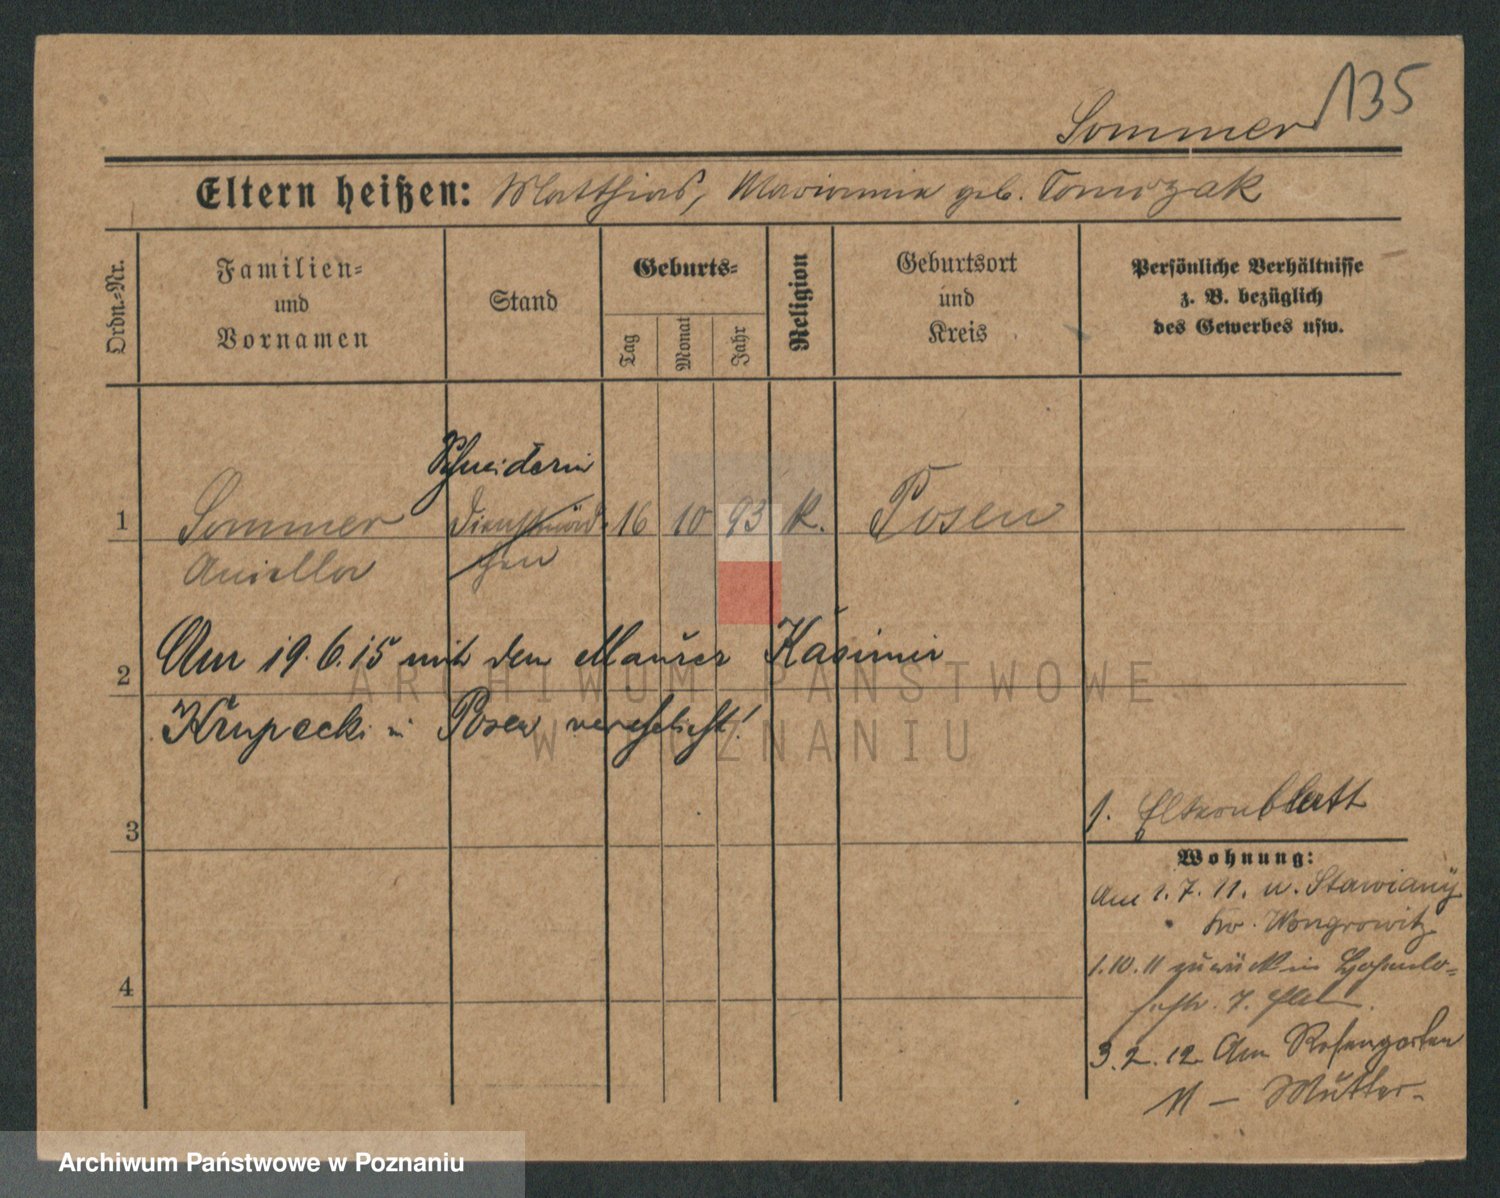 135
Sommer
Eltern heißen: Matthias, Marianna geb. Tomczak
Ordn.-Nr.
Familien- und Vornamen
Stand
Geburts-
Tag
Monat
Jahr
Religion
Geburtsort und Kreis
Persönliche Verhältnisse
z. B. bezüglich
des Gewerbes usw.
Schneiderin
1 Sommer Dienstmäd- 16 10 93 k. Posen
chen
2 Am 19.6.15 mit dem Maurer Kasimir
Krupecki in Posen verehelicht!
ARCHIWUM PAŃSTWOWE
W POZNANIU
3
4
s. Elternblatt
Wohnung:
Am 1.7.11. n. Stawiany
Kr. Wongrowitz
1.10.11 zurück in Hohenlo-
hestr. 7.
3.2.12 Am Rosengarten
11 – Mutter.
Archiwum Państwowe w Poznaniu